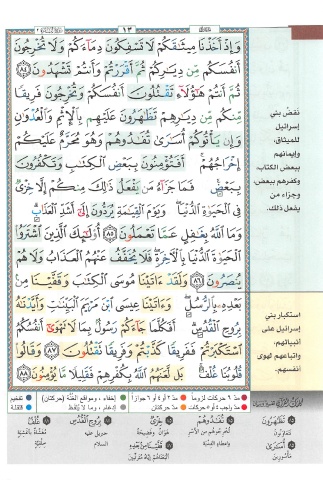 ١٣
وَإِذْ أَخَذْنَا مِيثَٰقَكُمْ لَا تَسْفِكُونَ دِمَآءَكُمْ وَلَا تُخْرِجُونَ
أَنفُسَكُم مِّن دِيَٰرِكُمْ ثُمَّ أَقْرَرْتُمْ وَأَنتُمْ تَشْهَدُونَ ٨٤
ثُمَّ أَنتُمْ هَٰٓؤُلَآءِ تَقْتُلُونَ أَنفُسَكُمْ وَتُخْرِجُونَ فَرِيقًا
مِّنكُم مِّن دِيَٰرِهِمْ تَظَٰهَرُونَ عَلَيْهِم بِٱلْإِثْمِ وَٱلْعُدْوَٰنِ
وَإِن يَأْتُوكُمْ أُسَٰرَىٰ تُفَٰدُوهُمْ وَهُوَ مُحَرَّمٌ عَلَيْكُمْ
إِخْرَاجُهُمْ أَفَتُؤْمِنُونَ بِبَعْضِ ٱلْكِتَٰبِ وَتَكْفُرُونَ
بِبَعْضٍ فَمَا جَزَآءُ مَن يَفْعَلُ ذَٰلِكَ مِنكُمْ إِلَّا خِزْىٌ
فِى ٱلْحَيَوٰةِ ٱلدُّنْيَا وَيَوْمَ ٱلْقِيَٰمَةِ يُرَدُّونَ إِلَىٰٓ أَشَدِّ ٱلْعَذَابِ
وَمَا ٱللَّهُ بِغَٰفِلٍ عَمَّا تَعْمَلُونَ ٨٥ أُو۟لَٰٓئِكَ ٱلَّذِينَ ٱشْتَرَوُا۟
ٱلْحَيَوٰةَ ٱلدُّنْيَا بِٱلْءَاخِرَةِ فَلَا يُخَفَّفُ عَنْهُمُ ٱلْعَذَابُ وَلَا هُمْ
يُنصَرُونَ ٨٦ وَلَقَدْ ءَاتَيْنَا مُوسَى ٱلْكِتَٰبَ وَقَفَّيْنَا مِنۢ
بَعْدِهِۦ بِٱلرُّسُلِ وَءَاتَيْنَا عِيسَى ٱبْنَ مَرْيَمَ ٱلْبَيِّنَٰتِ وَأَيَّدْنَٰهُ
بِرُوحِ ٱلْقُدُسِ أَفَكُلَّمَا جَآءَكُمْ رَسُولٌۢ بِمَا لَا تَهْوَىٰٓ أَنفُسُكُمُ
ٱسْتَكْبَرْتُمْ فَفَرِيقًا كَذَّبْتُمْ وَفَرِيقًا تَقْتُلُونَ ٨٧ وَقَالُوا۟
قُلُوبُنَا غُلْفٌۢ بَل لَّعَنَهُمُ ٱللَّهُ بِكُفْرِهِمْ فَقَلِيلًا مَّا يُؤْمِنُونَ ٨٨
نقض بني
إسرائيل
للميثاق،
وإيمانهم
ببعض الكتاب،
وكفرهم ببعض،
وجزاء من
يفعل ذلك.
استكبار بني
إسرائيل على
أنبيائهم،
واتباعهم لهوى
أنفسهم.
مدّ ٦ حركات لزوماً
مدّ ٢ أو ٤ أو ٦ جوازاً
إخفاء، ومواقع الغنّة (حركتان)
تفخيم
مدّ واجب ٤ أو ٥ حركات
مدّ حركتان
إدغام، وما لا يُلفظ
قلقلة